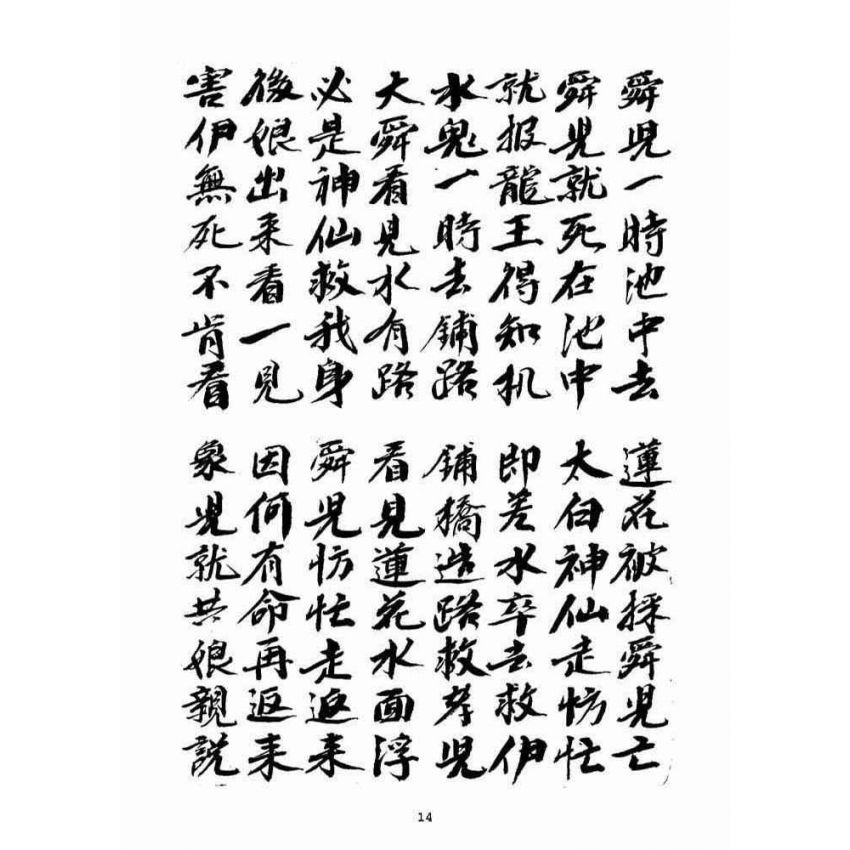 舜児一時池中去
蓮花被採舜児亡
舜児就死在池中
太白神仙走㤃忙
就报龍王得知机
即差水卒去救伊
水鬼一時去鋪路
鋪橋造路救孝児
大舜看見水有路
看見蓮花水面浮
必是神仙救我身
舜児㤃忙走返来
後娘出来看一見
因何有命再返来
害伊無死不肯看
象児就共娘親説
14